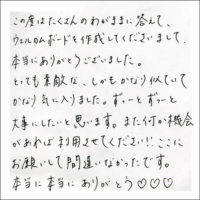 この度はたくさんのわがままに答えて、
ウェルカムボードを作成してくださいまして、
本当にありがとうございました。
とっても素敵な、しかもかなり似ていて
かなり気に入りました。ずーっとずーっと
大事にしたいと思います。また何か機会
があれば利用させてください!!ここに
お願いして間違いなかったです。
本当に本当にありがとう♡♡♡